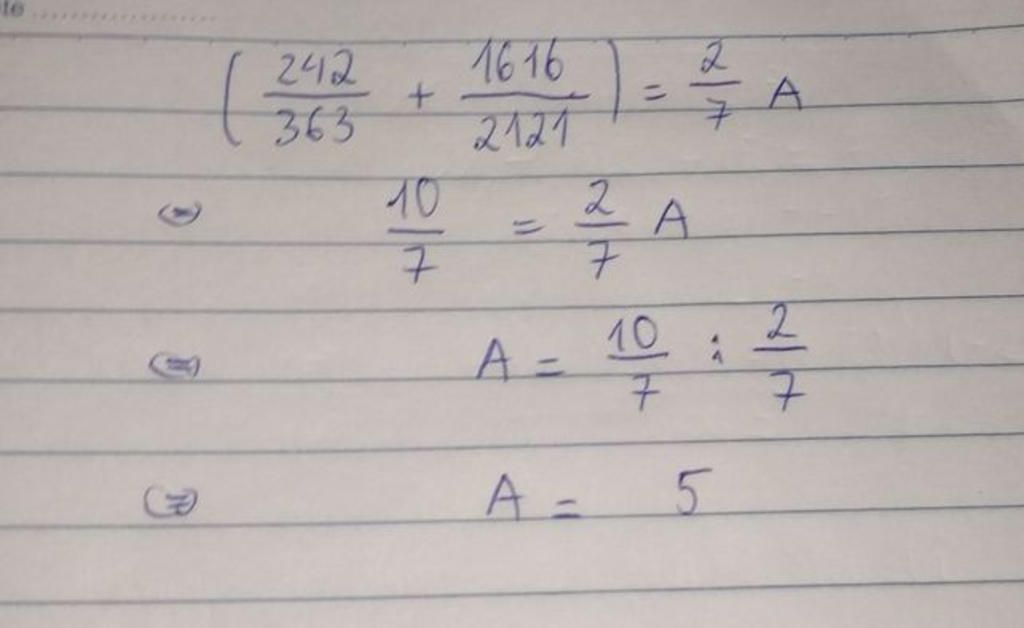 ( 242/363 + 1616/2121 ) = 2/7 A
(=) 10/7 = 2/7 A
(=) A = 10/7 : 2/7
(=) A = 5